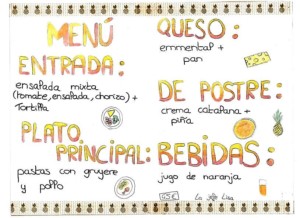 MENÚ
ENTRADA:
ensalada mixta
(tomate, ensalada, chorizo) +
Tortilla
PLATO
PRINCIPAL:
pastas con gruyere
y pollo
QUESO:
emmental +
pan
DE POSTRE:
crema catalana +
piña
BEBIDAS:
jugo de naranja